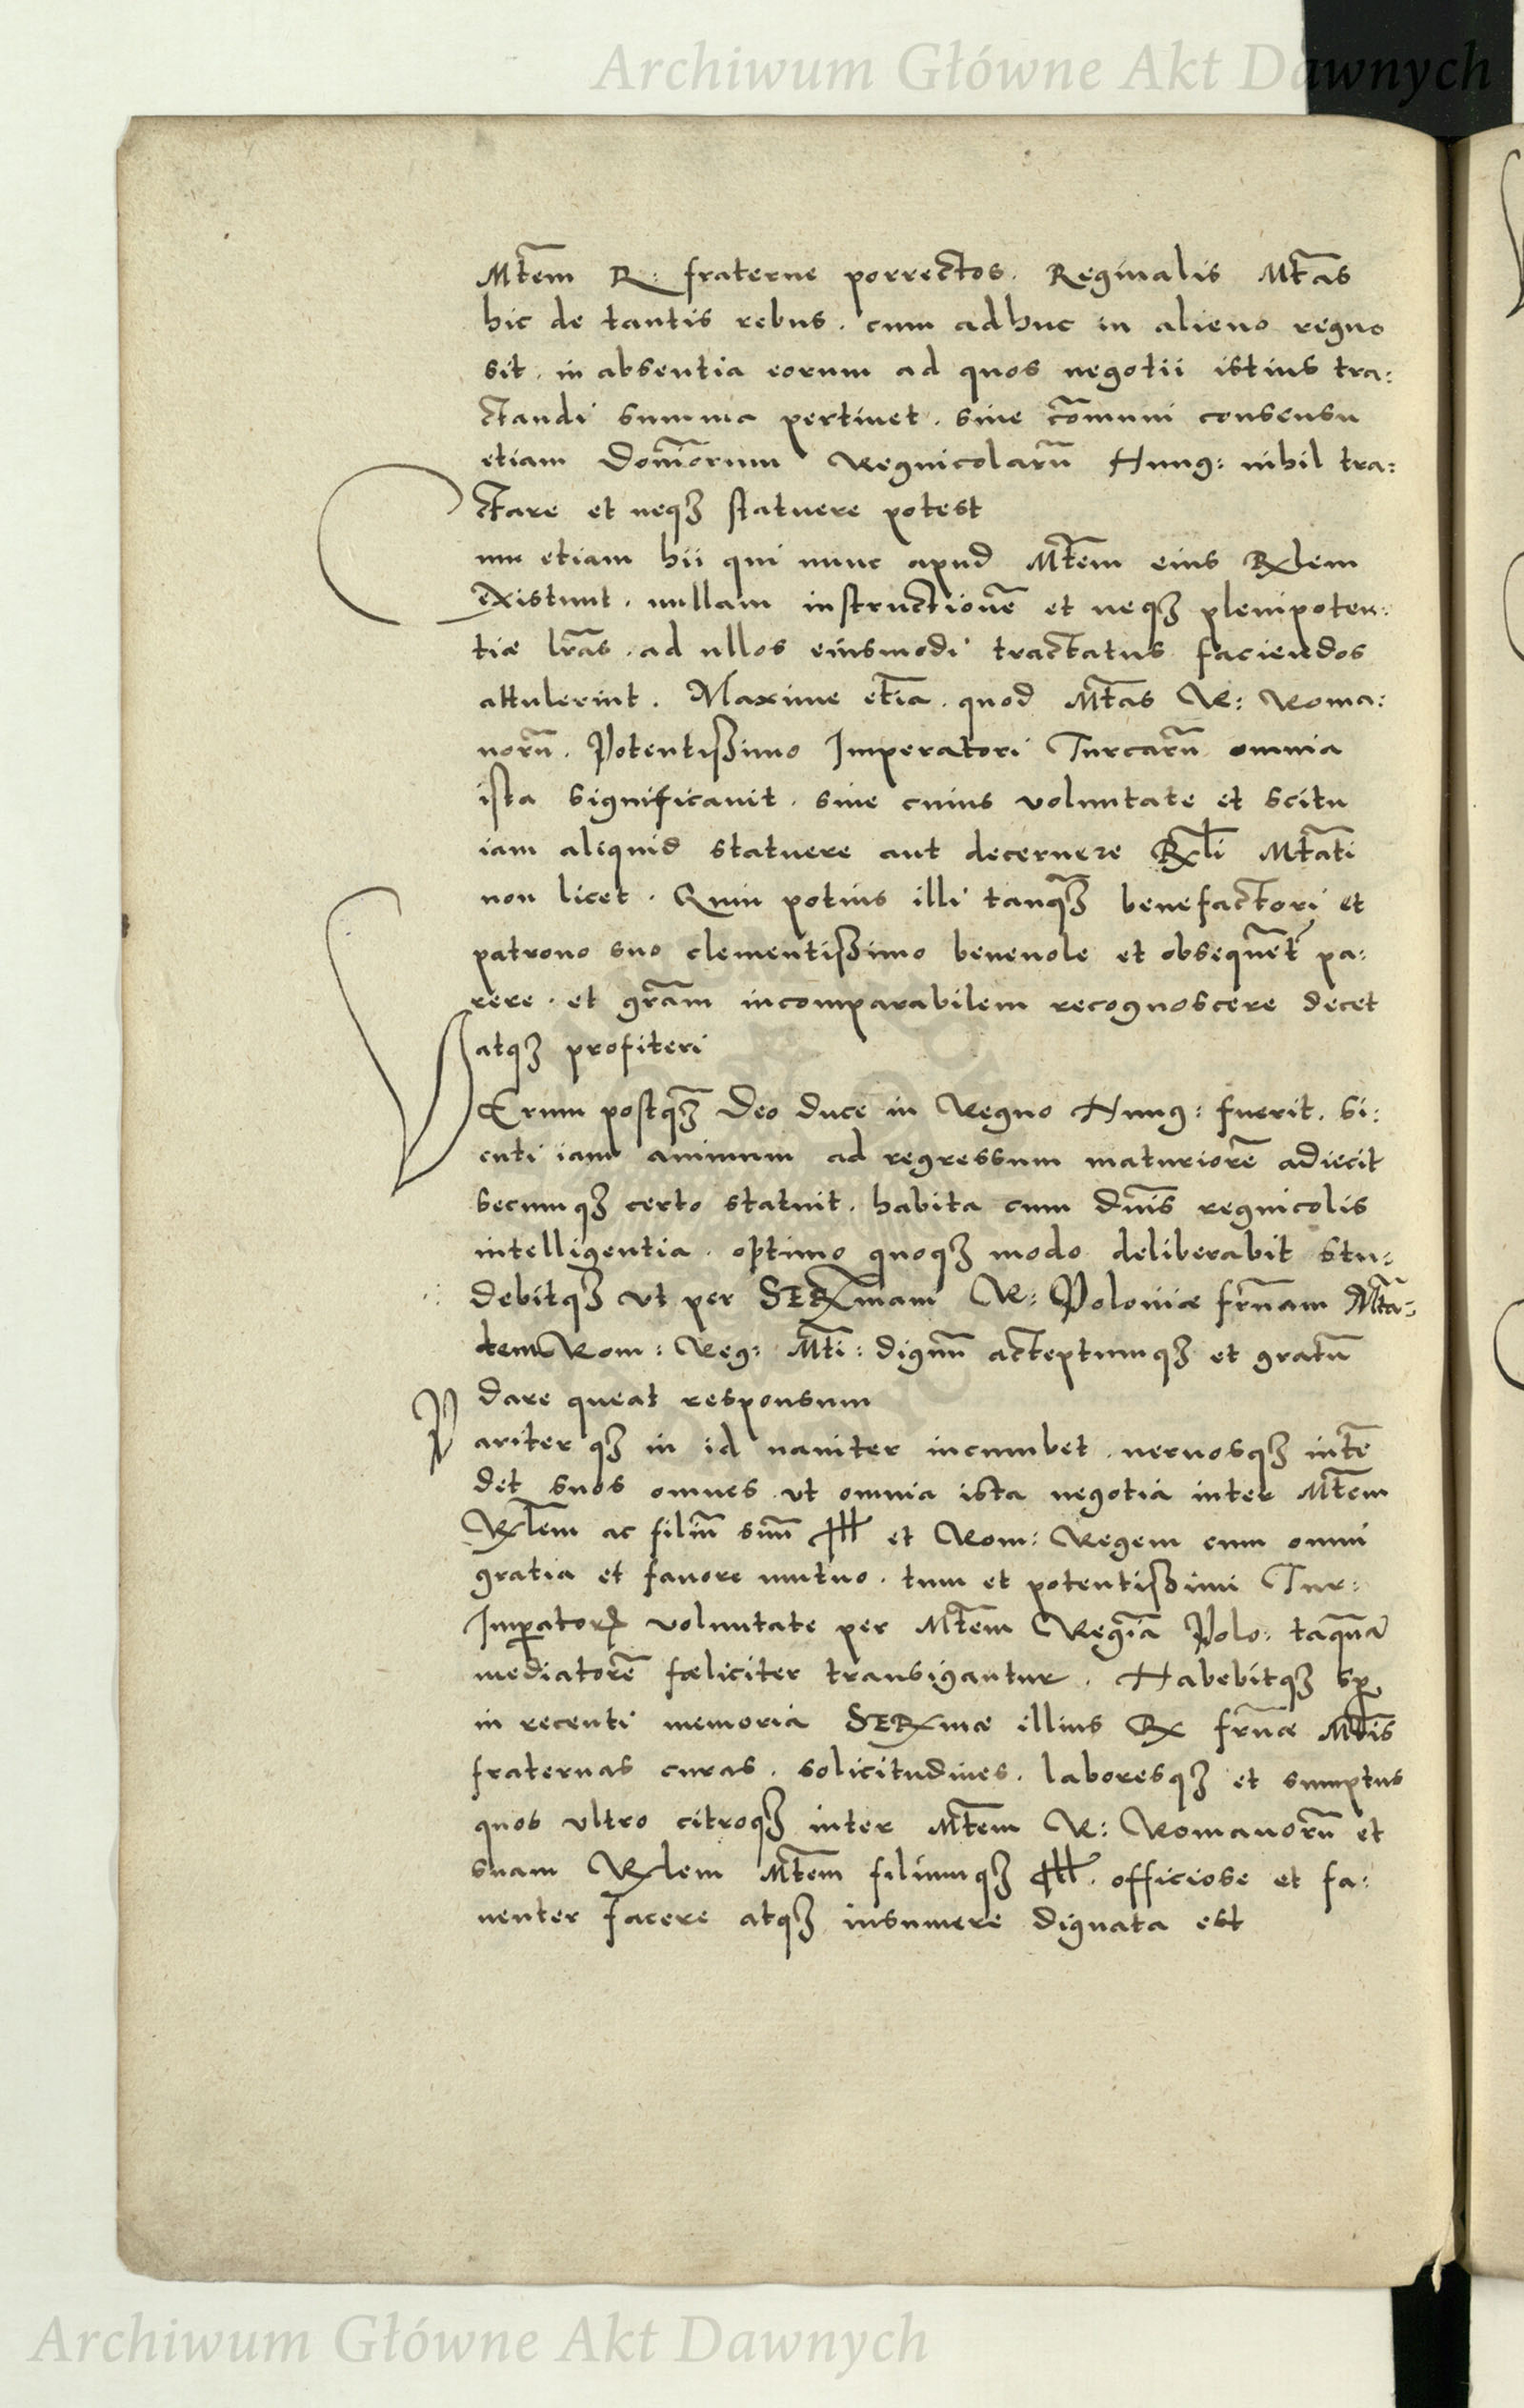 Archiwum Główne Akt Dawnych
Mt̃em R: fraterne porrectos. Reginalis Mt̃as
hic de tantis rebus. cum adhuc in alieno regno
sit. in absentia eorum ad quos negotii istius tra:
ctandi summa pertinet. sine cõmuni consensu
etiam Domĩorum Regnicolarũ Hung: nihil tra:
ctare et neqꝫ statuere potest
Cum etiam hii qui nunc apud Mt̃em eius Rlem
existunt. nullam instructionẽ et neqꝫ plenipoten:
tiæ lr̃as. ad ullos eiusmodi tractatus faciendos
attulerint. Maxime et̃ia. quod Mt̃as R: Roma:
norũ. Potentissimo Imperatori Turcarũ omnia
ista significauit. sine cuius voluntate et scitu
iam aliquid statuere aut decernere Rli Mt̃ati
non licet. Quin potius illi tanqꝫ̃ benefactori et
patrono suo clementissimo beneuole et obsequẽt pa:
rere. et gr̃am incomparabilem recognoscere decet
atqꝫ profiteri
VErum postqꝫ̃ Deo duce in Regno Hung: fuerit. si:
cuti iam animum ad regressum maturiorẽ adiecit
secumqꝫ certo statuit. habita cum dñis regnicolis
intelligentia. optimo quoqꝫ modo deliberabit stu:
debitqꝫ ut per SERmam R: Poloniæ fr̃nam Mt̃a:
tem Rom: Reg: Mt̃i: dignũ acceptumqꝫ et gratũ
dare queat responsum
Pariterqꝫ in id nauiter incumbet. neruosqꝫ intẽ
det suos omnes. ut omnia ista negotia inter Mt̃em
Rlem ac filiũ suũ Ill et Rom: Regem cum omni
gratia et fauore mutuo. tum et potentissimi Tur:
Imꝑatoris voluntate per Mt̃em Regiã Polo: tãquam
mediatorẽ fœliciter transigantur. Habebitqꝫ sꝑ
in recenti memoria SERmæ illius R fr̃næ Mt̃is
fraternas curas. solicitudines. laboresqꝫ et sumptus
quos ultro citroqꝫ inter Mt̃em R: Romanorũ et
suam Rlem Mt̃em filiumqꝫ Ill. officiose et fa:
uenter facere atqꝫ insumere dignata est
Archiwum Główne Akt Dawnych